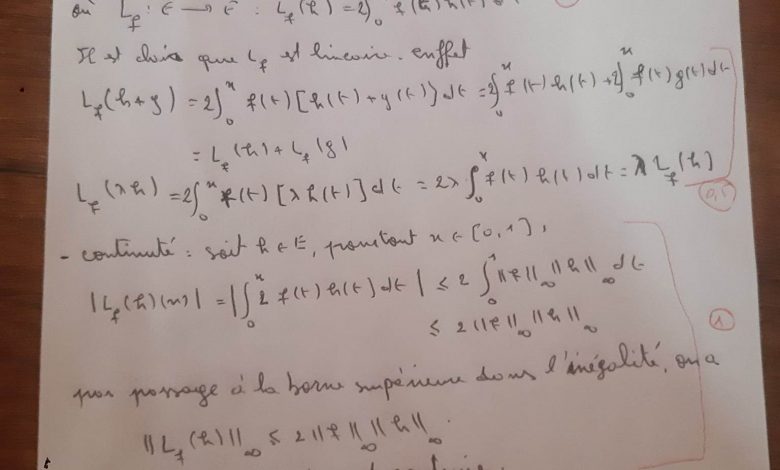 où L_f : E → E : L_f(h) = 2∫₀ f(t)h(t)
Il est clair que L_f est linéaire. en effet
L_f(h+g) = 2∫₀ˣ f(t)[h(t)+g(t)]dt = 2∫₀ˣ f(t)h(t)+2∫₀ˣ f(t)g(t)dt
= L_f(h)+L_f(g)
L_f(λh) = 2∫₀ˣ f(t)[λh(t)]dt = 2λ∫₀ˣ f(t)h(t)dt = λL_f(h)
- continuité : soit h∈E, pour tout x∈[0,1],
|L_f(h)(x)| = |∫₀ˣ 2 f(t)h(t)dt| ≤ 2∫₀¹ ||f||_∞ ||h||_∞ dt
≤ 2||f||_∞ ||h||_∞
1
par passage à la borne supérieure dans l'inégalité, on a
||L_f(h)||_∞ ≤ 2||f||_∞ ||h||_∞.